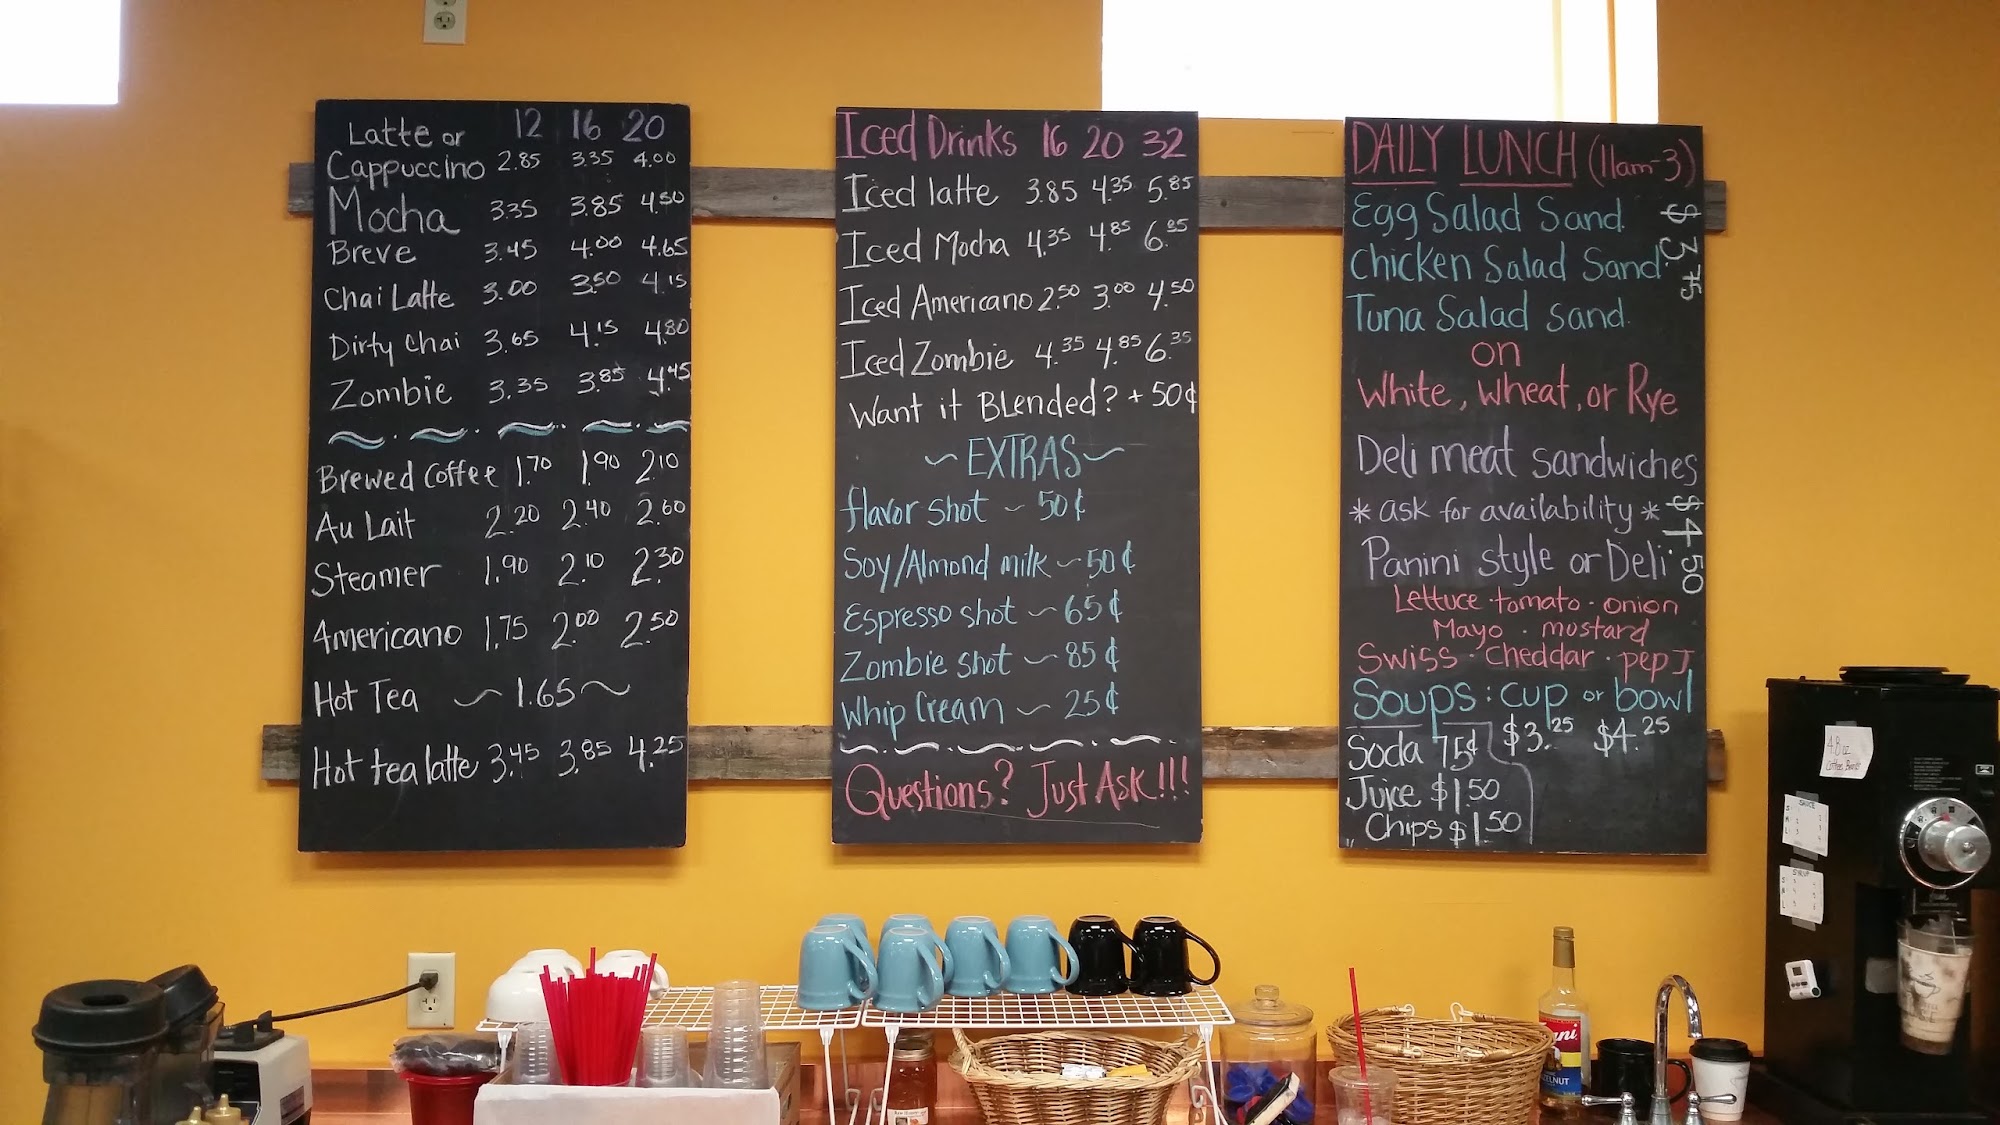 12 16 20
Latte or
Cappuccino 2.85 3.35 4.00
Mocha 3.35 3.85 4.50
Breve 3.45 4.00 4.65
Chai Latte 3.00 3.50 4.15
Dirty Chai 3.65 4.15 4.80
Zombie 3.35 3.85 4.45
Brewed Coffee 1.70 1.90 2.10
Au Lait 2.20 2.40 2.60
Steamer 1.90 2.10 2.30
Americano 1.75 2.00 2.50
Hot Tea ~ 1.65 ~
Hot tea latte 3.45 3.85 4.25
Iced Drinks 16 20 32
Iced latte 3.85 4.35 5.85
Iced Mocha 4.35 4.85 6.35
Iced Americano 2.50 3.00 4.50
Iced Zombie 4.35 4.85 6.35
Want it Blended? + 50¢
~ EXTRAS ~
flavor shot ~ 50¢
Soy/Almond milk ~ 50¢
Espresso shot ~ 65¢
Zombie shot ~ 85¢
Whip Cream ~ 25¢
Questions? Just Ask!!!
DAILY LUNCH (11am-3)
Egg Salad Sand.
Chicken Salad Sand.
Tuna Salad Sand.
$3.75
on
White, Wheat, or Rye
Deli meat sandwiches
* ask for availability *
Panini style or Deli
$4.50
Lettuce · tomato · onion
Mayo · mustard
Swiss · Cheddar · pep J.
Soups: cup or bowl
$3.25 $4.25
Soda 75¢
Juice $1.50
Chips $1.50
4.8 oz
SAUCE
SYRUP